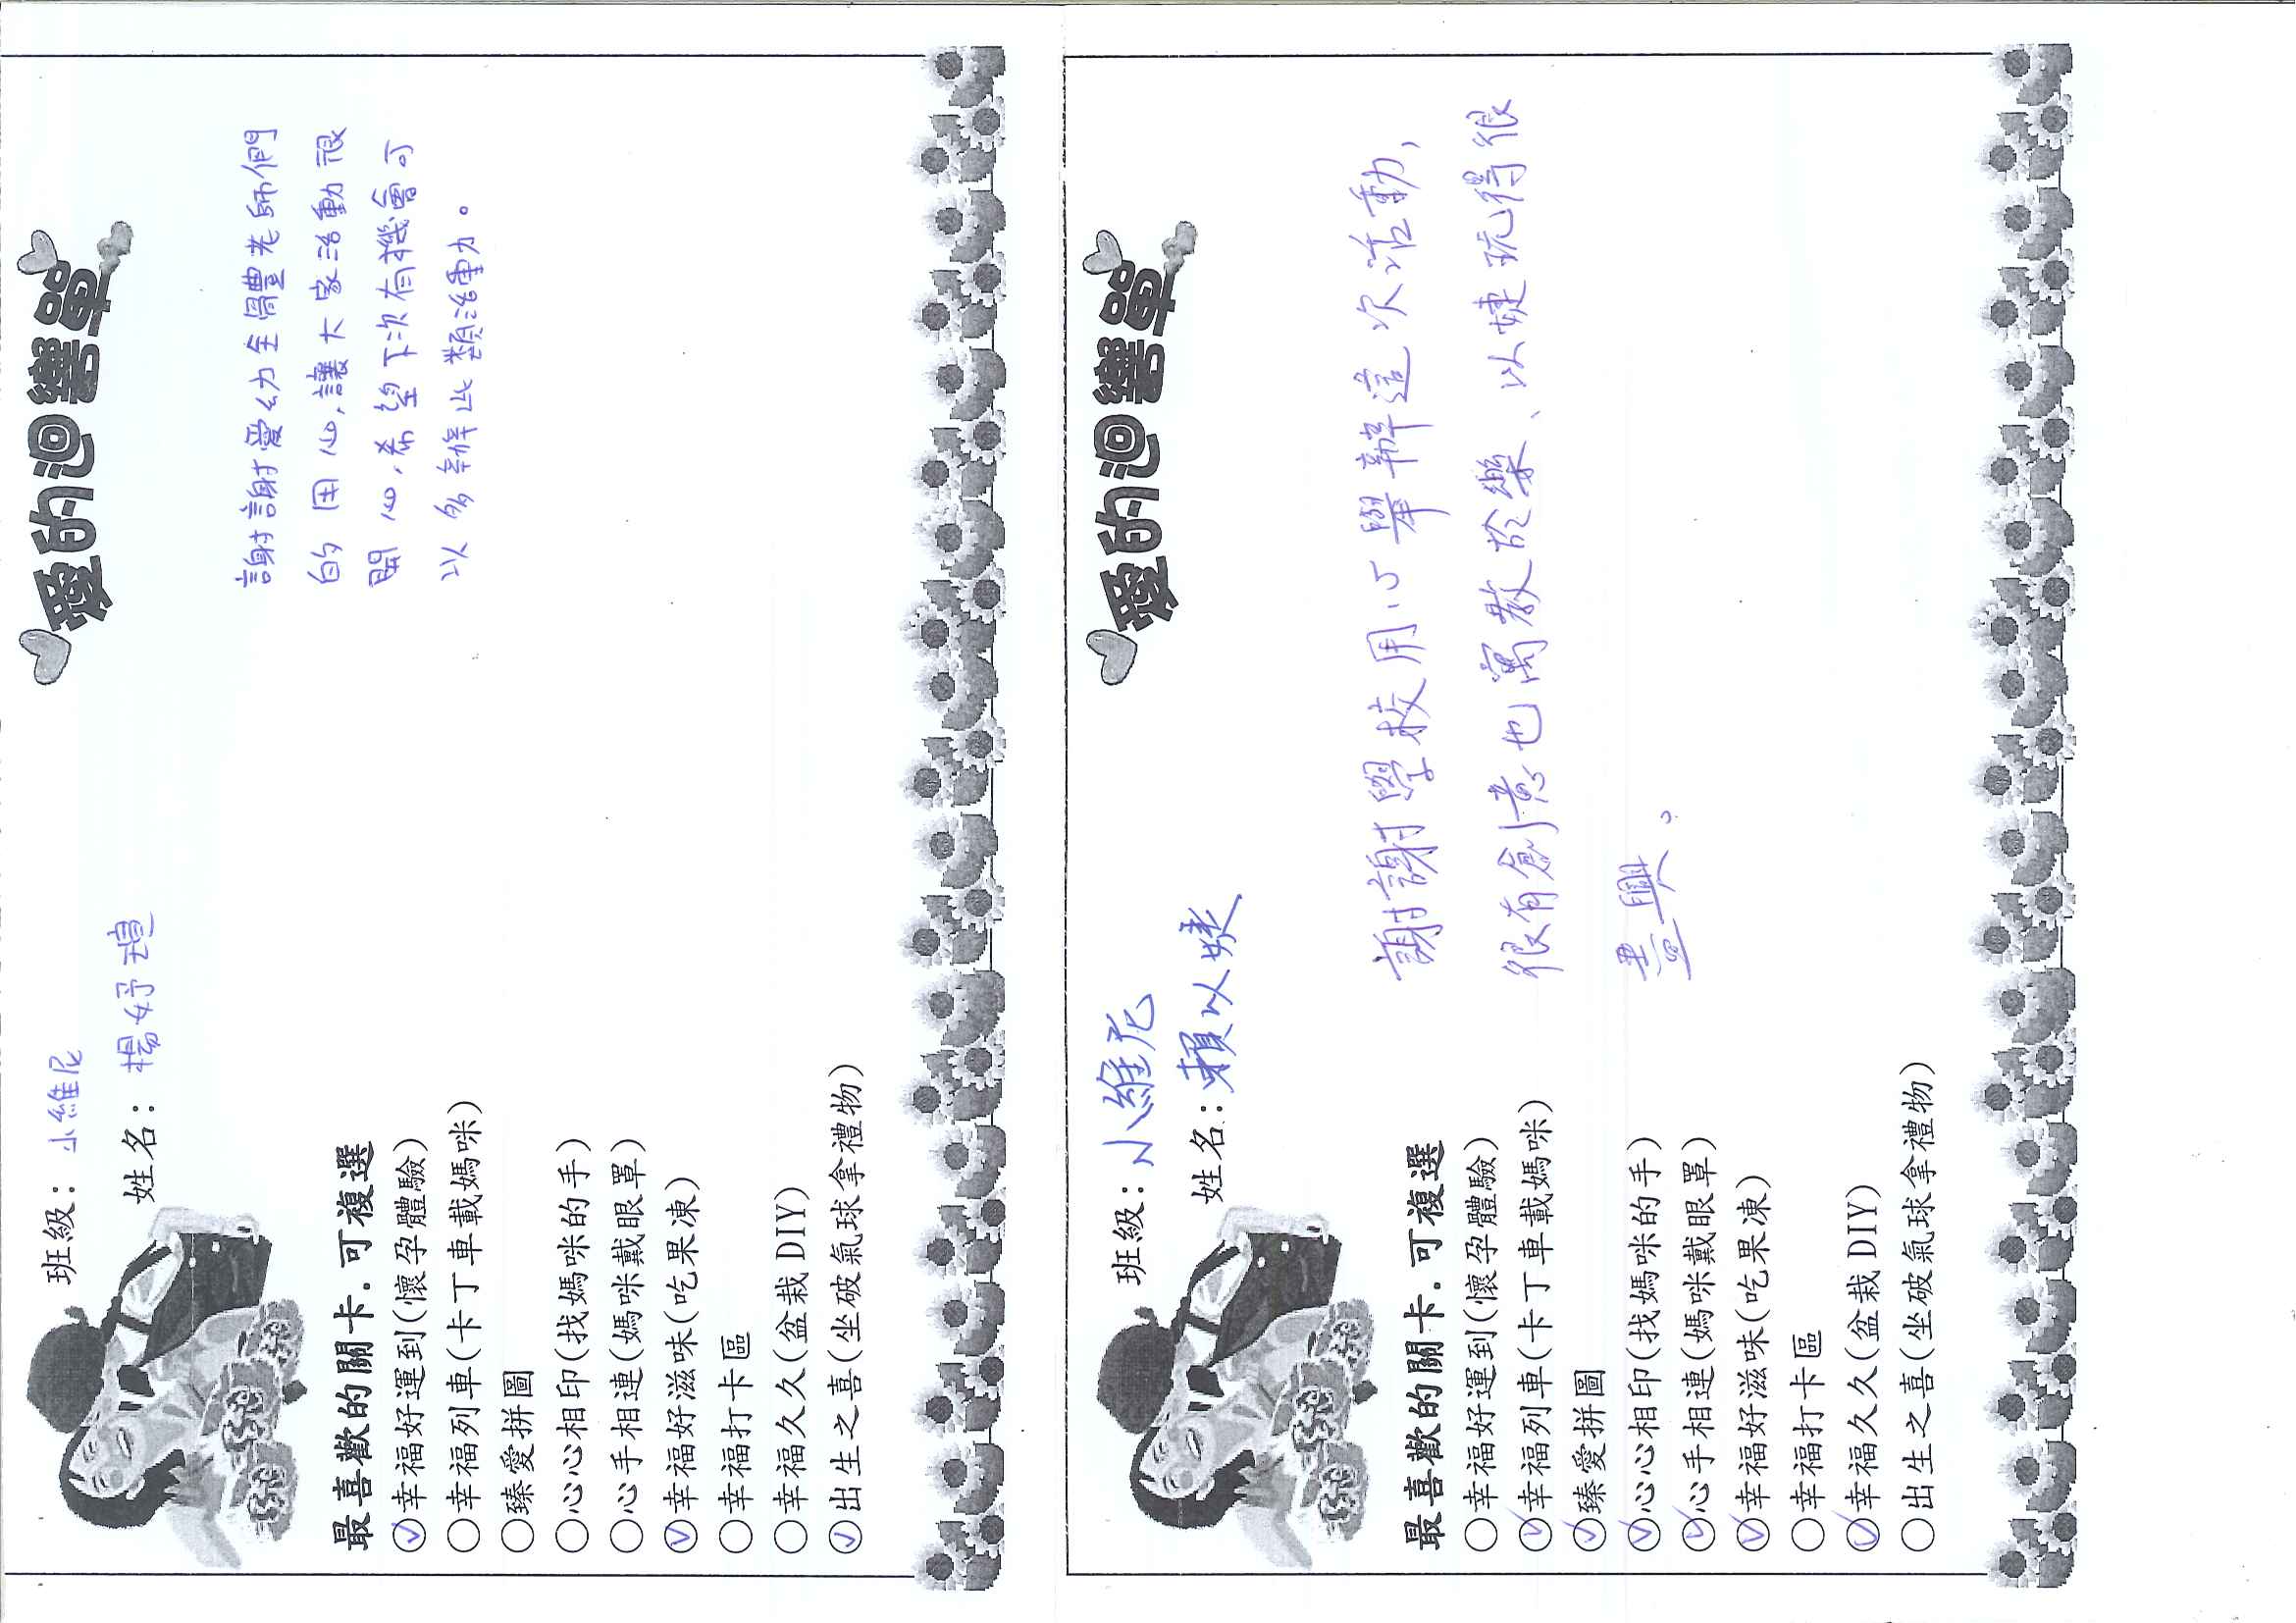 愛的迴響單
班級：小維尼
姓名：楊妤瑄
謝謝愛幼全體老師們
的用心,讓大家活動很
開心,希望下次有機會可
以多辦此類活動。
最喜歡的關卡.可複選
幸福好運到(懷孕體驗)
幸福列車(卡丁車載媽咪)
臻愛拼圖
心心相印(找媽咪的手)
心手相連(媽咪戴眼罩)
幸福好滋味(吃果凍)
幸福打卡區
幸福久久(盆栽DIY)
出生之喜(坐破氣球拿禮物)
愛的迴響單
班級：小維尼
姓名：賴以婕
謝謝學校用心舉辦這次活動,
很有創意也寓教於樂、以婕玩得很
盡興。
最喜歡的關卡.可複選
幸福好運到(懷孕體驗)
幸福列車(卡丁車載媽咪)
臻愛拼圖
心心相印(找媽咪的手)
心手相連(媽咪戴眼罩)
幸福好滋味(吃果凍)
幸福打卡區
幸福久久(盆栽DIY)
出生之喜(坐破氣球拿禮物)